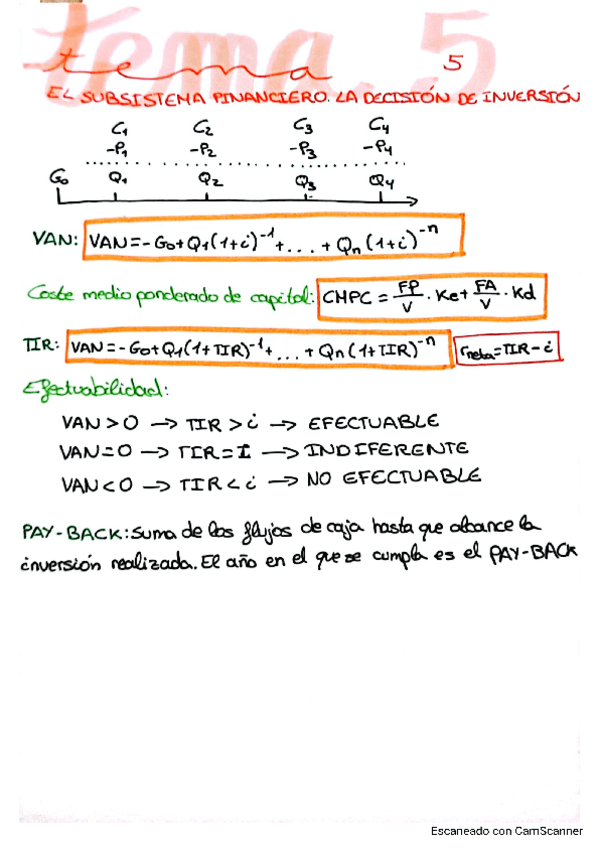 tema 5
tema 5
EL SUBSISTEMA FINANCIERO. LA DECISIÓN DE INVERSIÓN
C1 C2 C3 C4
-P1 -P2 -P3 -P4
G0 Q1 Q2 Q3 Q4
VAN: VAN=-G0+Q1(1+i)⁻¹+...+Qn(1+i)⁻ⁿ
Coste medio ponderado de capital: CMPC = FP/V · Ke + FA/V · Kd
TIR: VAN=-G0+Q1(1+TIR)⁻¹+...+Qn(1+TIR)⁻ⁿ rneta=TIR-i
Efectuabilidad:
VAN>0 → TIR>i → EFECTUABLE
VAN=0 → TIR=I → INDIFERENTE
VAN<0 → TIR<i → NO EFECTUABLE
PAY-BACK: Suma de los flujos de caja hasta que alcance la
inversión realizada. El año en el que se cumpla es el PAY-BACK
Escaneado con CamScanner